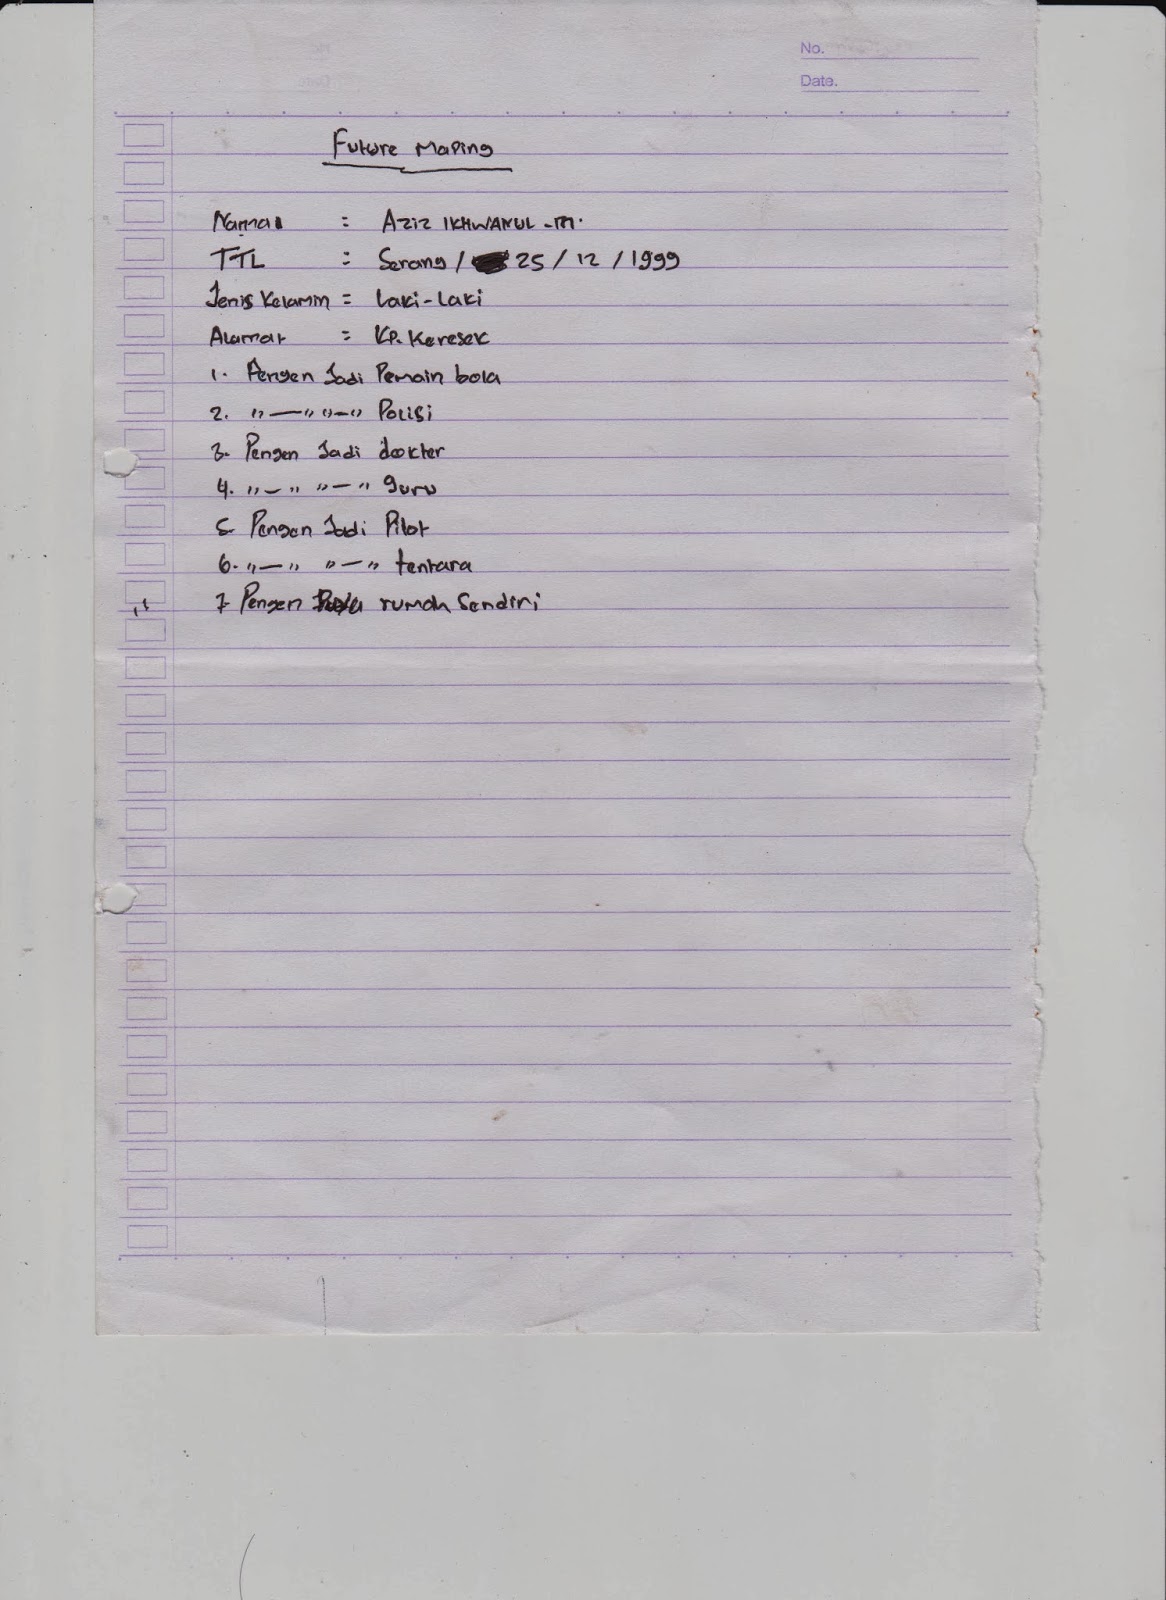 No.
Date.
Future Maping
Nama : Aziz IKHWANUL .M.
TTL : Serang / 25 / 12 / 1999
Jenis Kelamin = Laki-Laki
Alamat : Kp. Keresek
1. Pengen Jadi Pemain bola
2. " — " " — " Polisi
3. Pengen Jadi dokter
4. " — " " — " guru
5. Pengen Jadi Pilot
6. " — " " — " tentara
7 Pengen rumah Sendiri